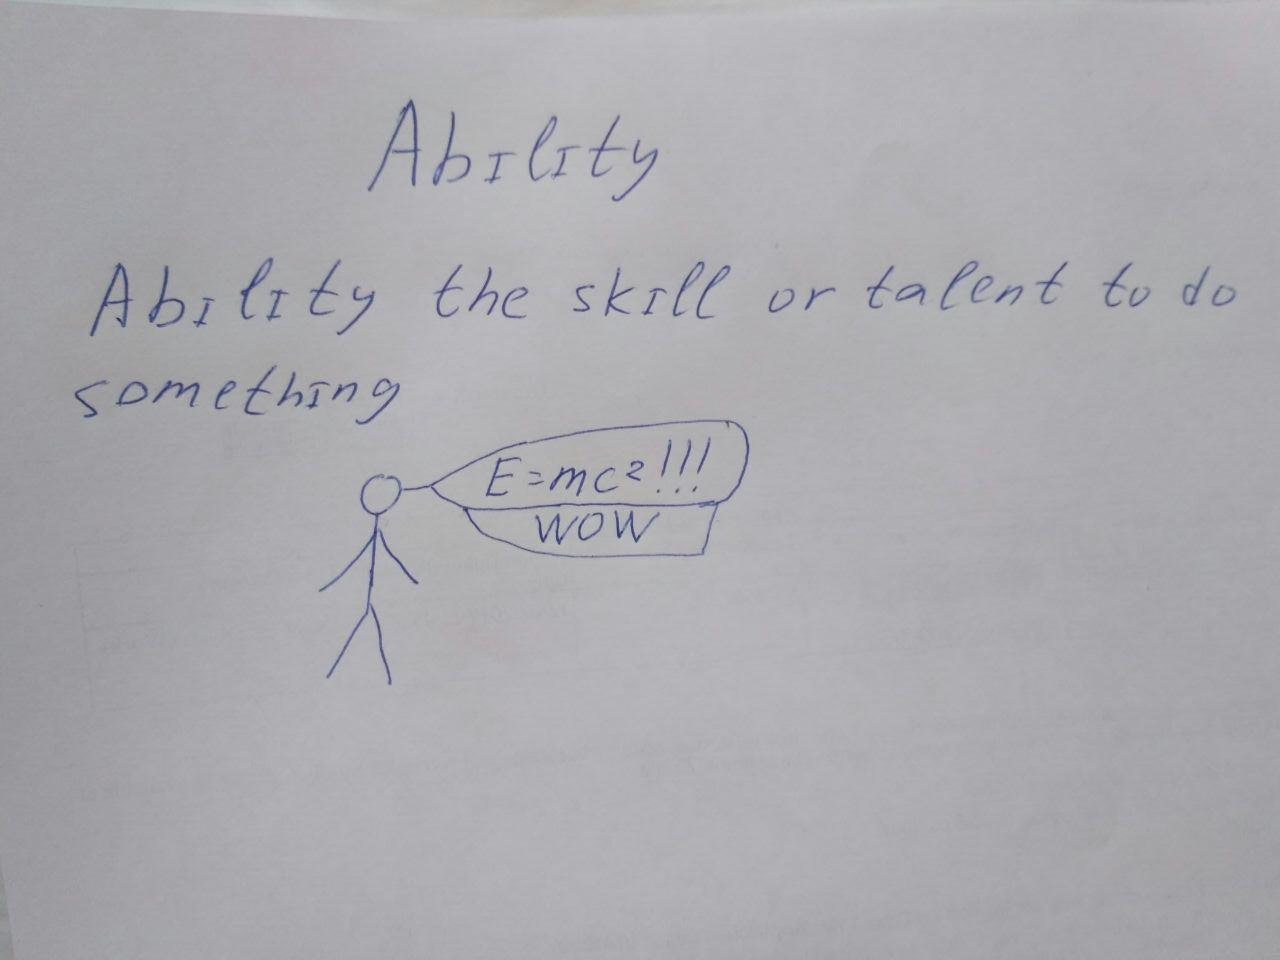 Ability
Ability the skill or talent to do
something
E=mc²!!!
WOW